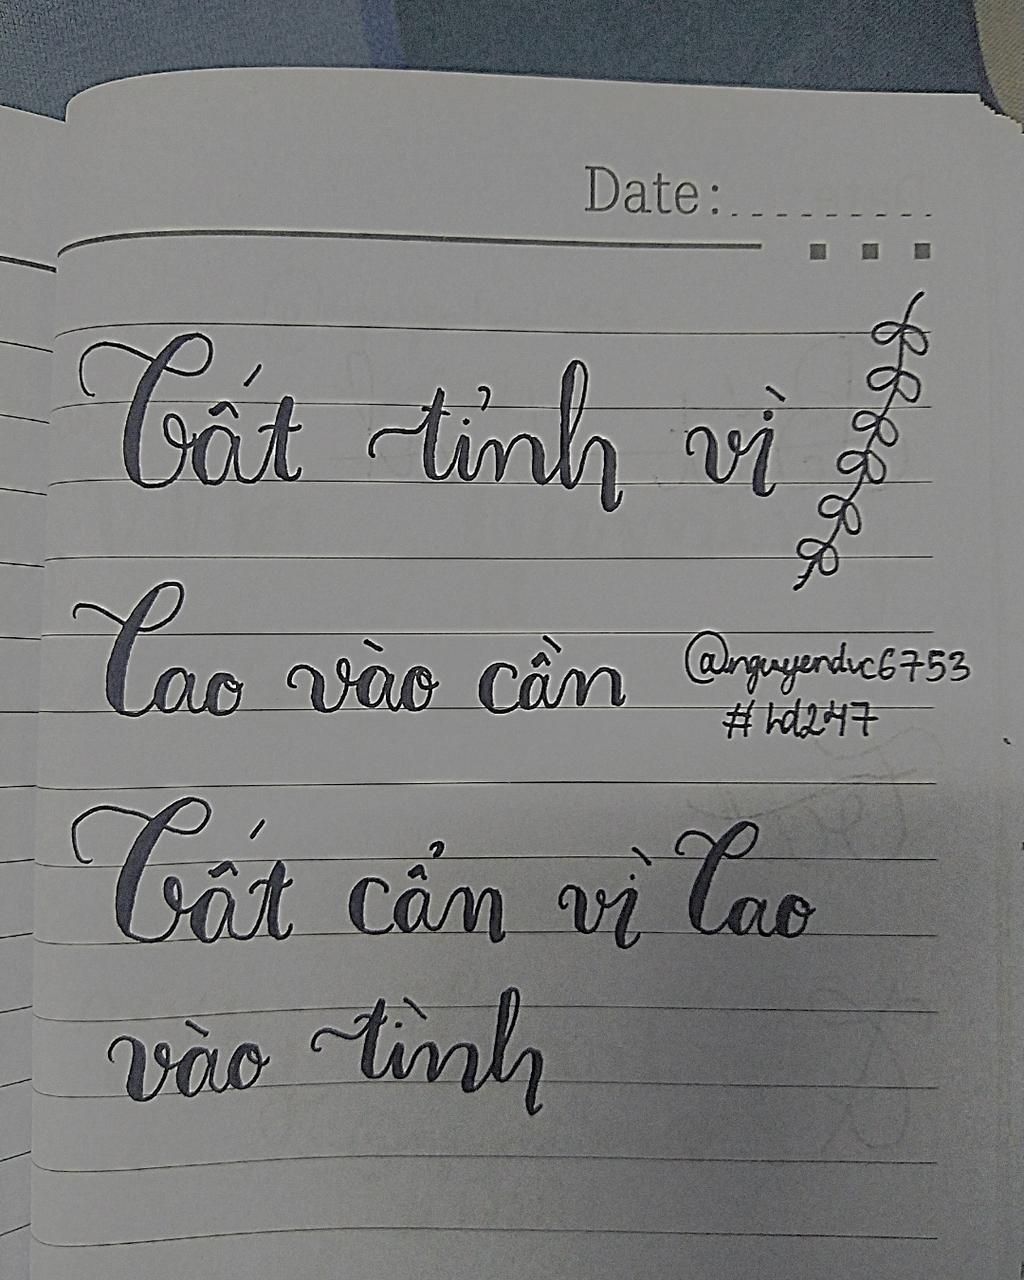 Date:
Bất tỉnh vì
Lao vào cần
@nguyenduc6753
#hd247
Bất cẩn vì Lao
vào tình